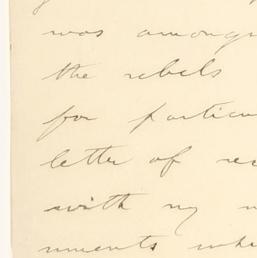 was among
the rebels
for particu
letter of re
with my
uments whi